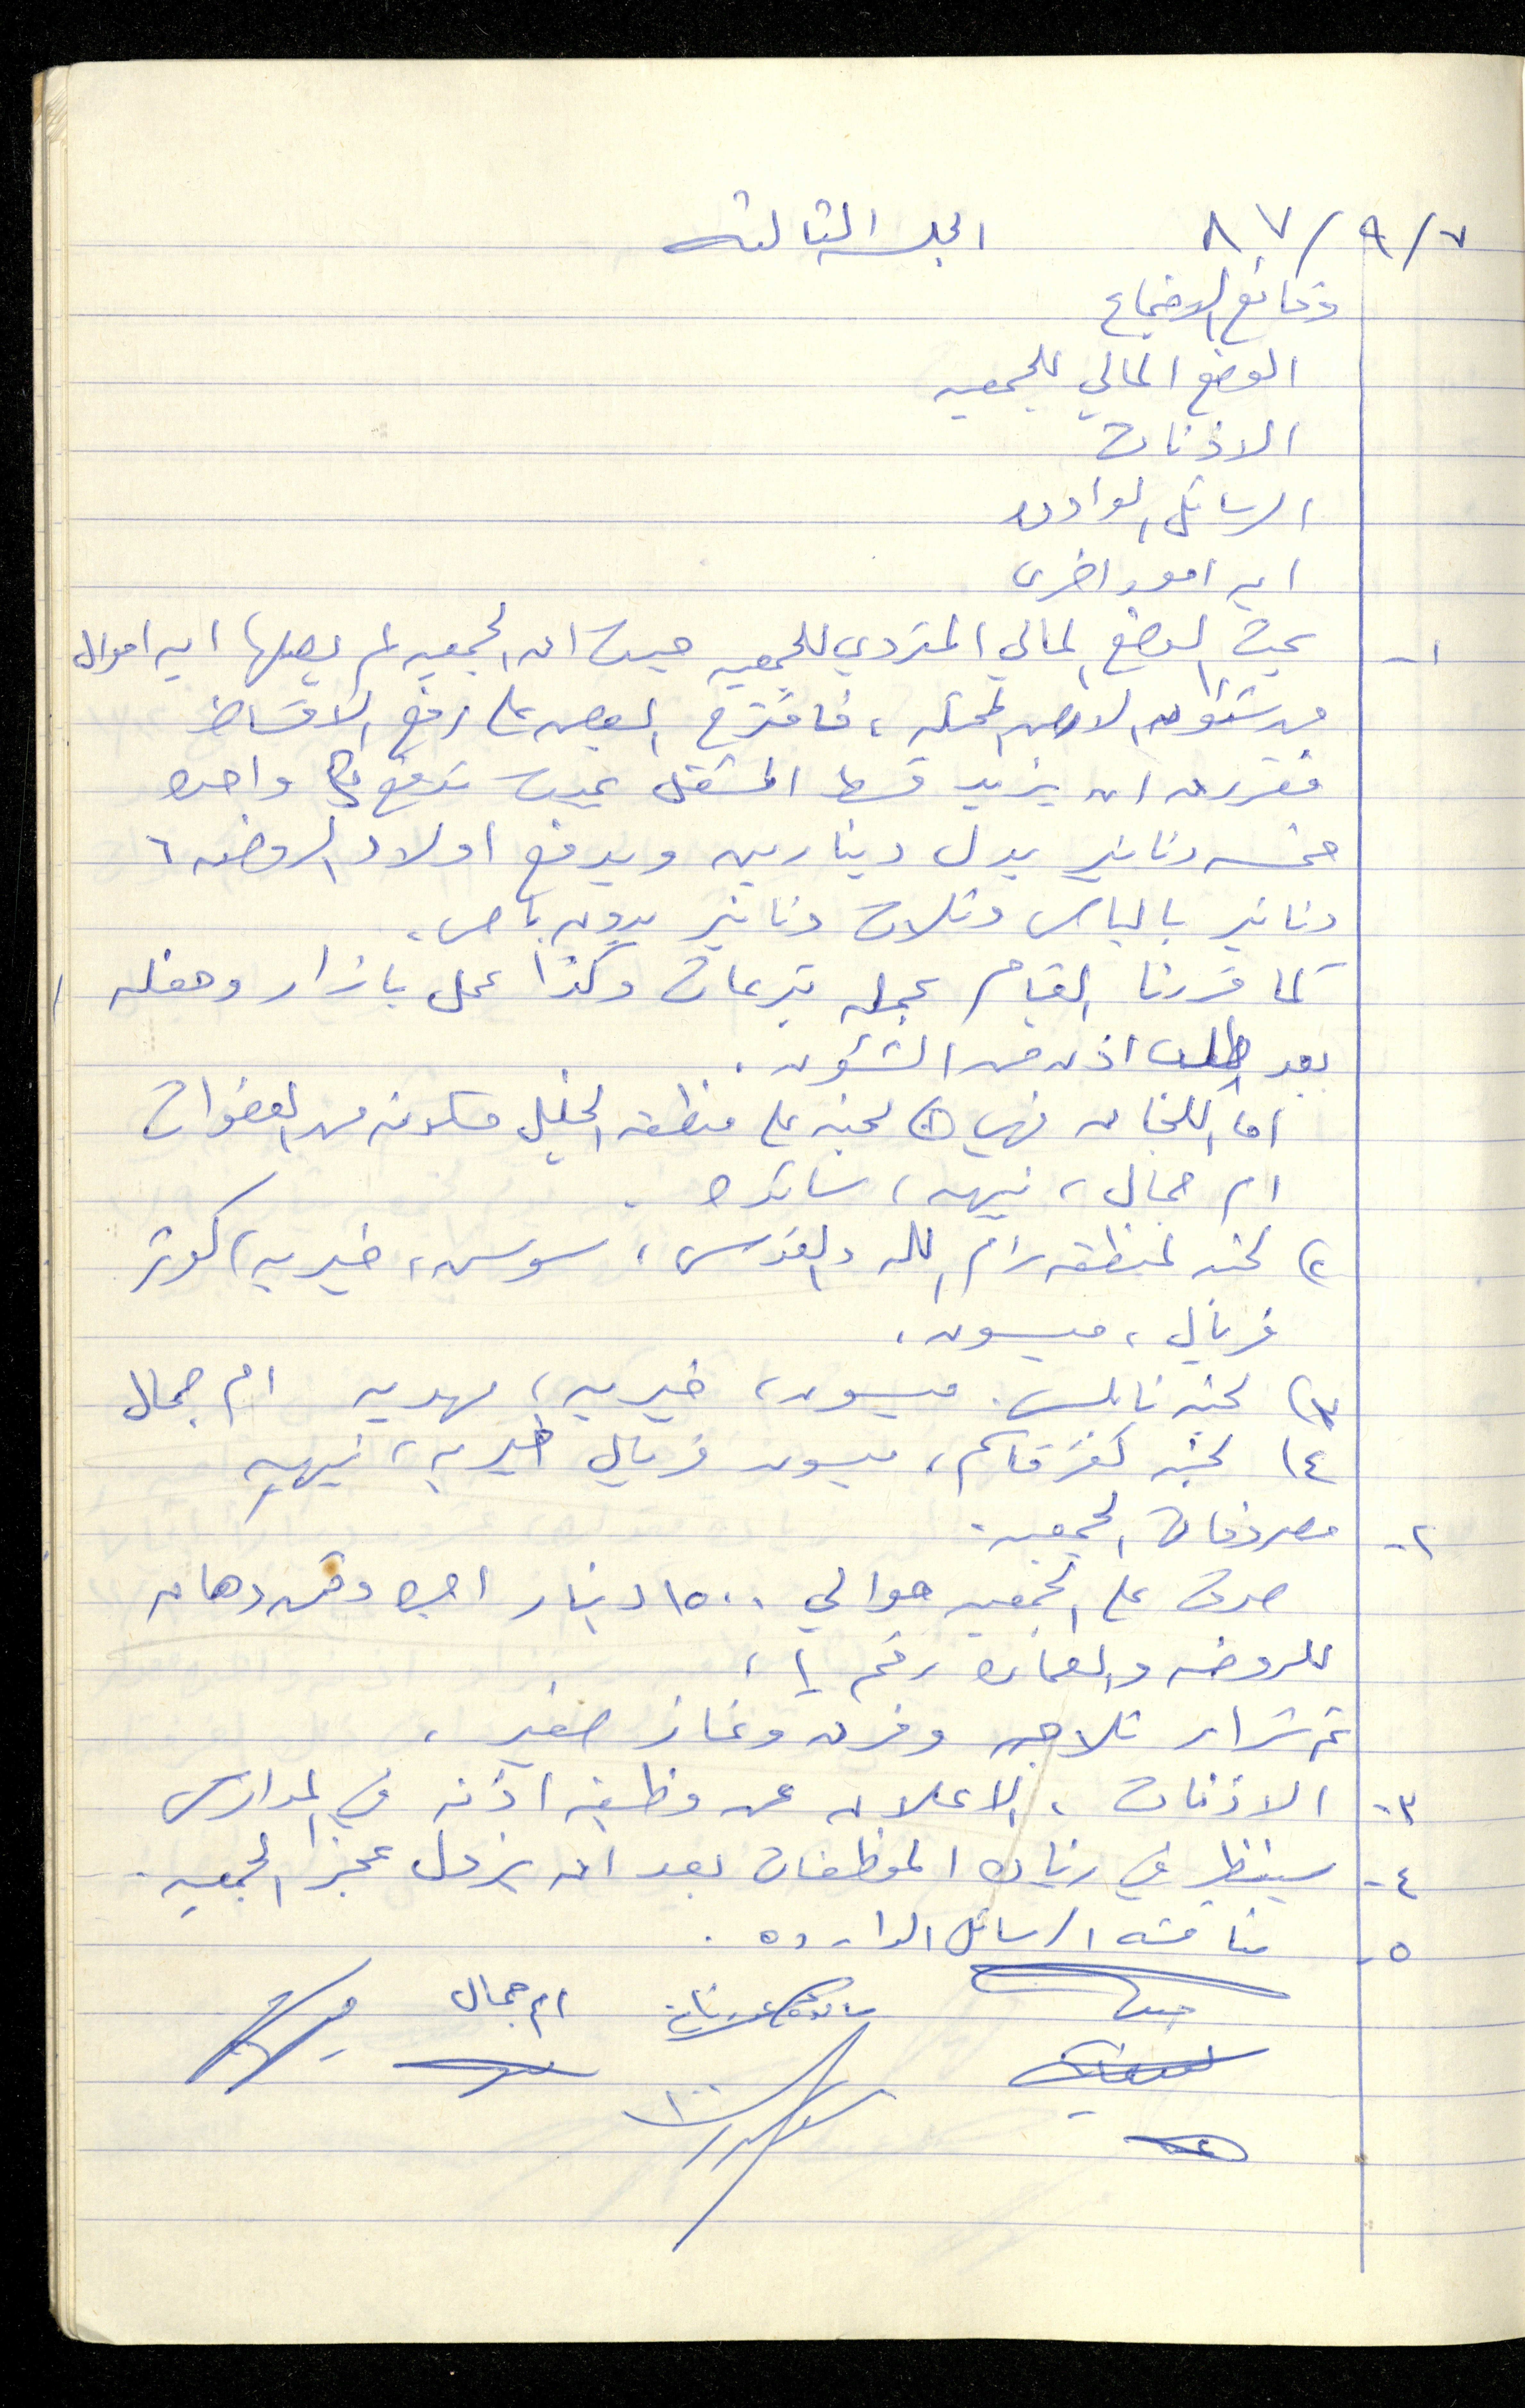 ٧/٩/٨٧ الجلسه الثالثه
وقائع الاجتماع
الوضع المالي للجمعيه
الاذنات
الرسائل الوارده
ايه امور اخرى
١- بحث الوضع المالي المتردي للجمعيه حيث ان الجمعيه لم يصلها ايه اموال
من شؤون الارض المحتله، فاقترح البعض على رفع الاقساط
فقررن ان يزيد قسط المشغل بحيث تدفع كل واحده
خمسه دنانير بدل دينارين ويدفع اولاد الروضه ٦
دنانير بالباص وثلاث دنانير بدون باص.
كما قررنا القيام بحمله تبرعات وكذا عمل بازار وحفله
بعد طلب اذن من الشؤون.
اما اللجان فهي ١) لجنه على منطقه الخليل مكونه من العضوات
ام جمال، نبيهه، سائده.
٢) لجنه لمنطقه رام الله والقدس، سوسن، خيريه، كوثر
فريال، ميسون.
٣) لجنه نابلس. ميسون، خيريه، مهديه ام جمال
٤) لجنه كفر قاسم، ميسون فريال خيريه، نبيهه
٢- مصروفات الجمعيه.
صرف على الجمعيه حوالي ١٥٠٠ دينار اجره وقص ودهان
للروضه والعماره رقم ١،
تم شراء ثلاجه وفرن وغاز صغير.
٣- الاذنات، الاعلان عن وظيفه اذنه في المدارس
٤- سينظر في زياده الموظفات بعد ان يزول عجز الجمعيه.
٥- مناقشه الرسائل الوارده.
ام جمال